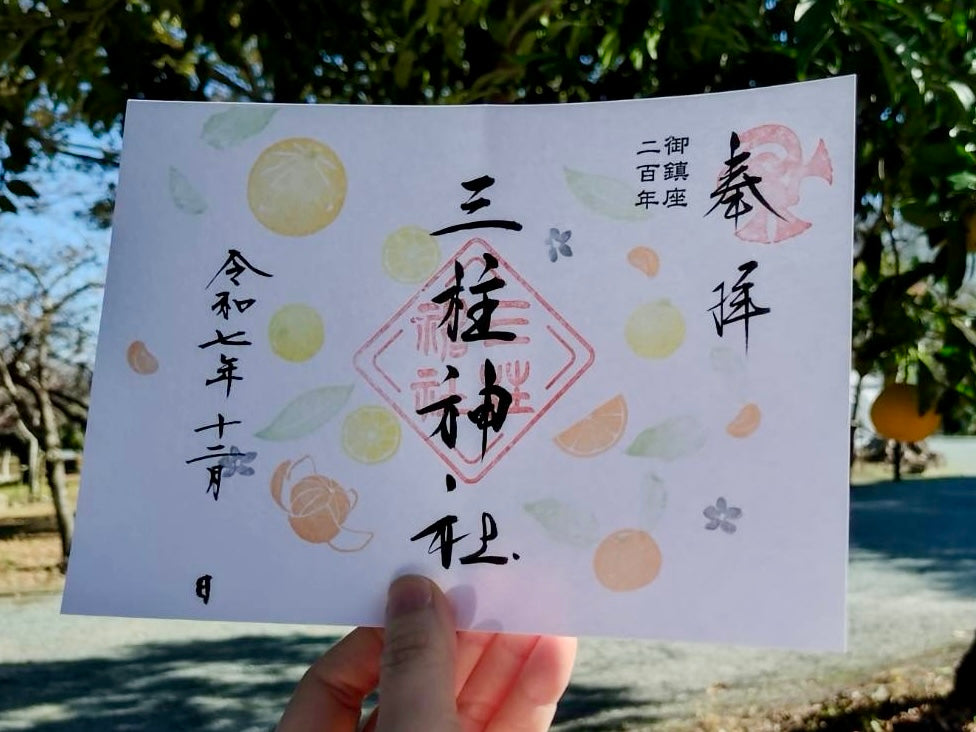 奉拝
御鎮座
二百年
三柱神社
三柱神社
令和七年十二月 日